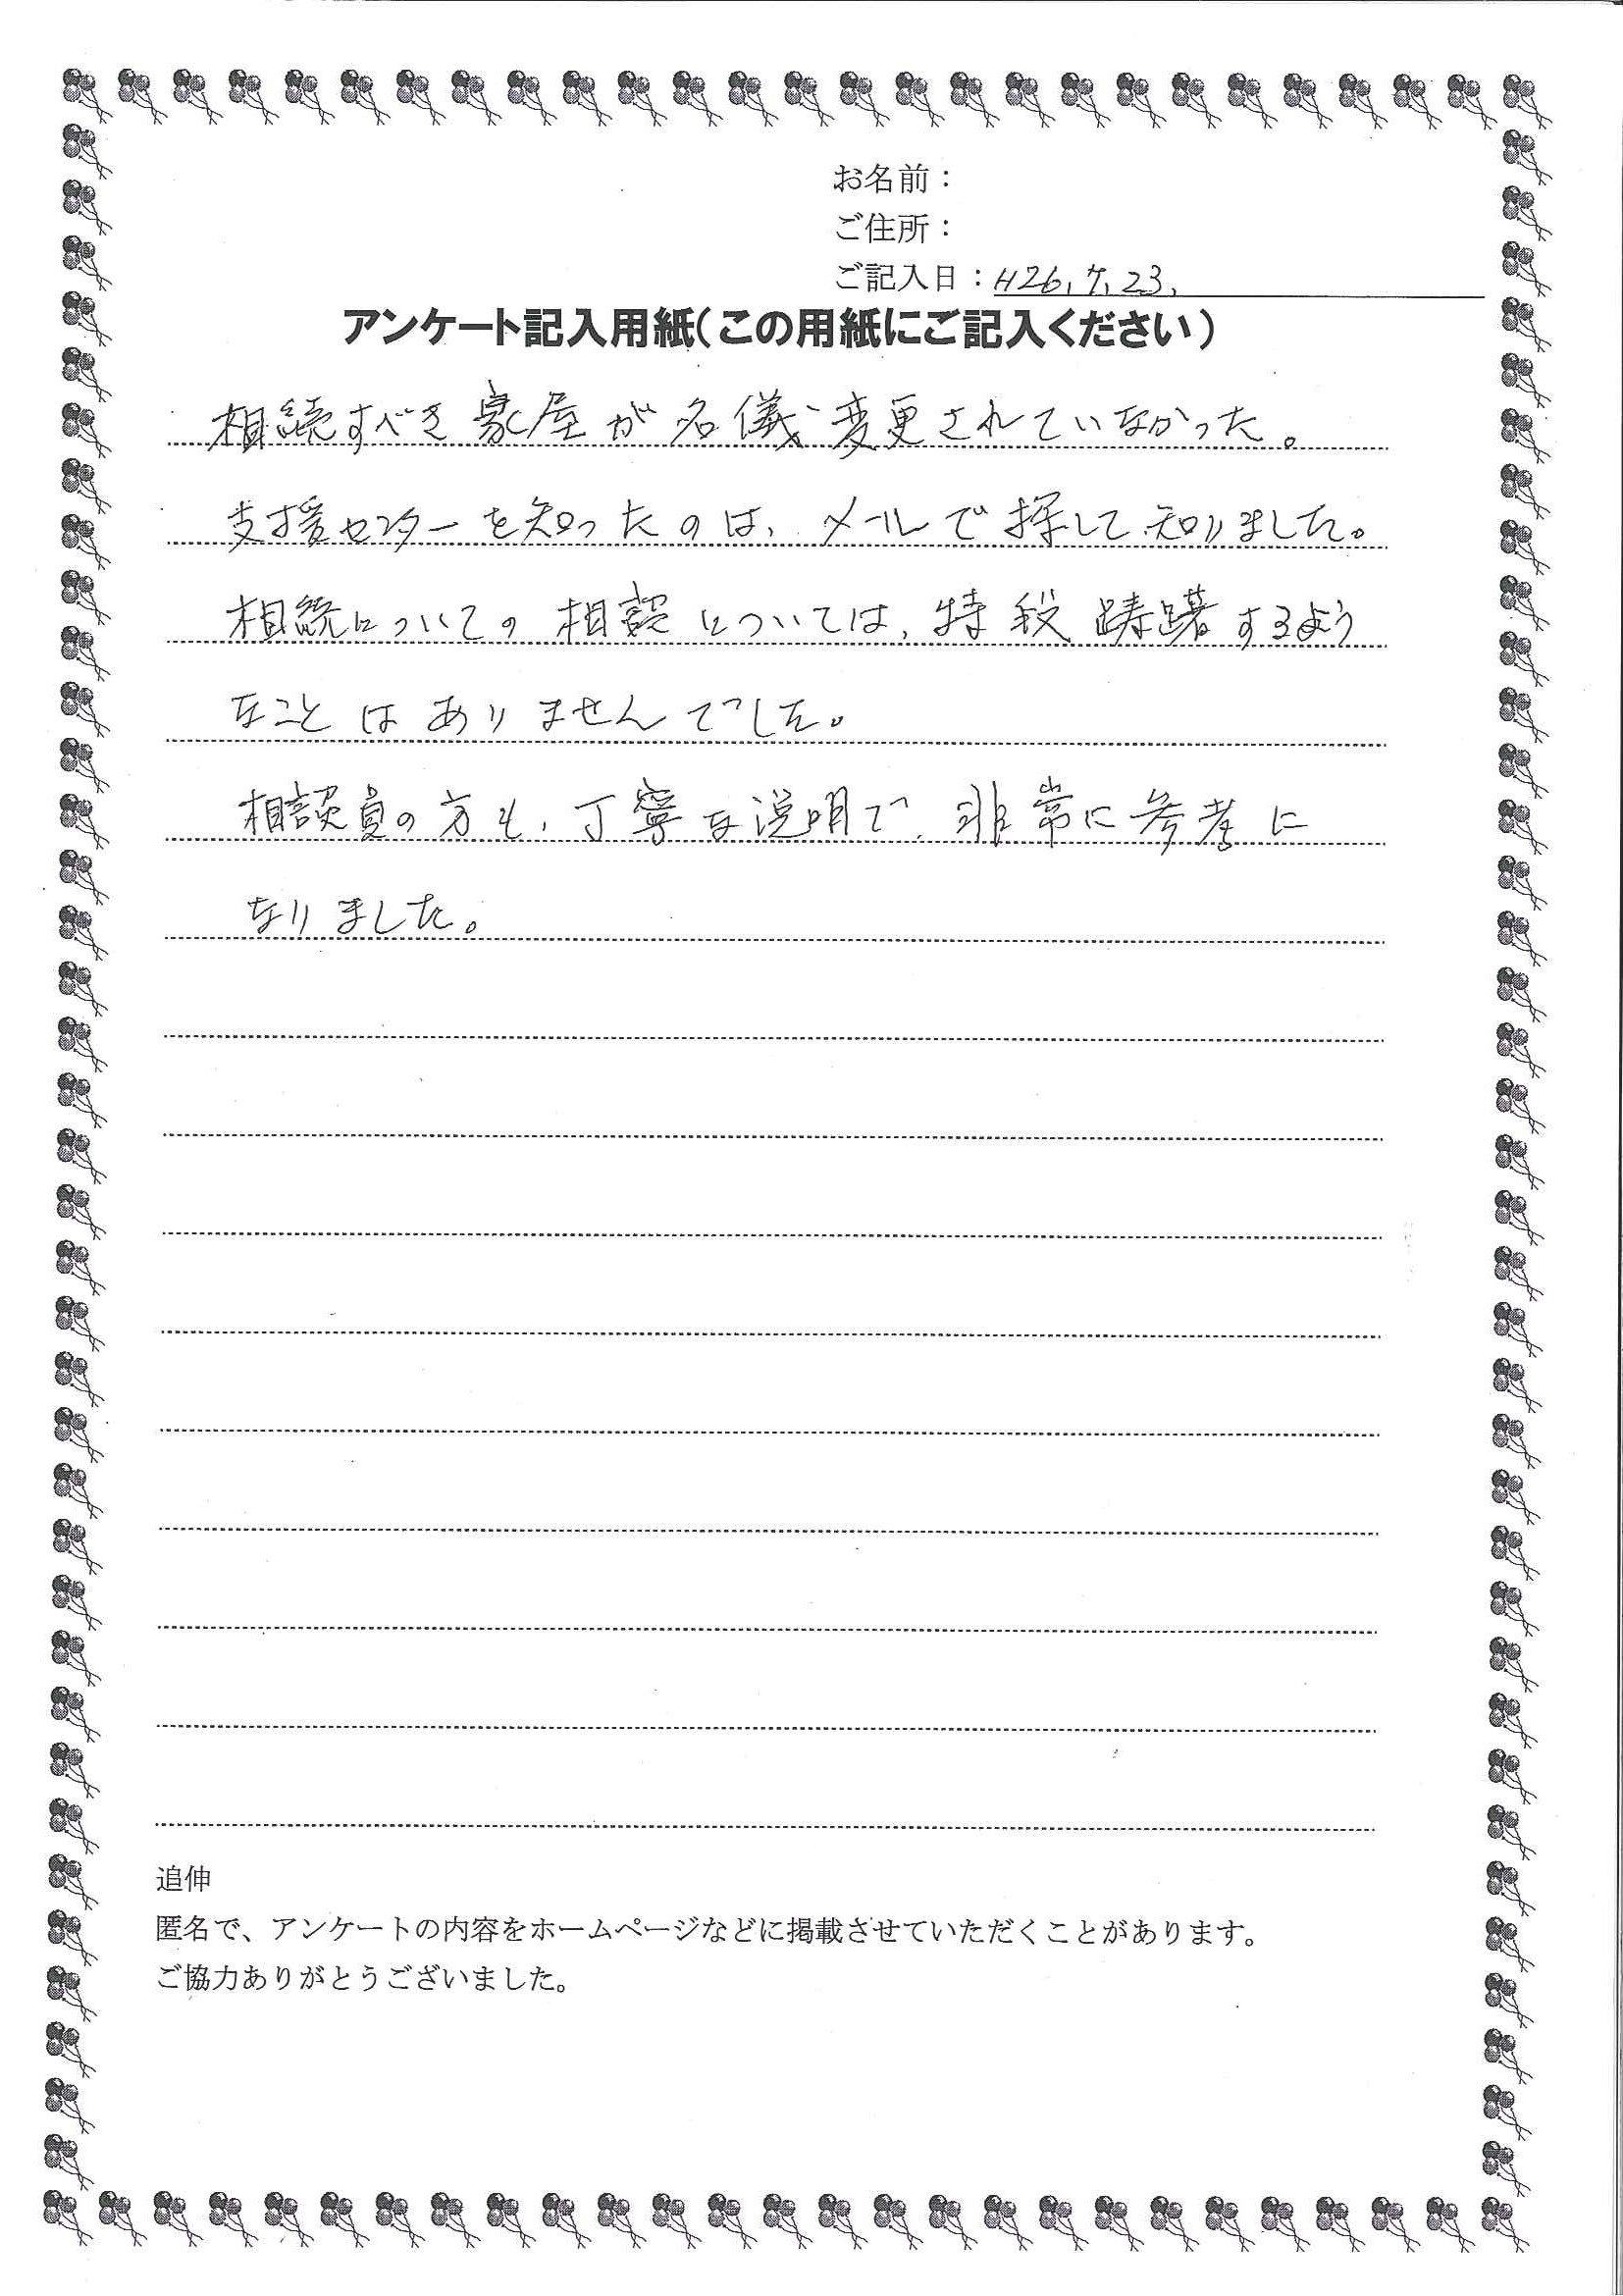 お名前：
ご住所：
ご記入日：H26.7.23.
アンケート記入用紙（この用紙にご記入ください）
相続すべき家屋が名儀変更されていなかった。
支援センターを知ったのは、メールで探して知りました。
相続についての相談については、特段躊躇するよう
なことはありませんでした。
相談員の方も、丁寧な説明で、非常に参考に
なりました。
追伸
匿名で、アンケートの内容をホームページなどに掲載させていただくことがあります。
ご協力ありがとうございました。